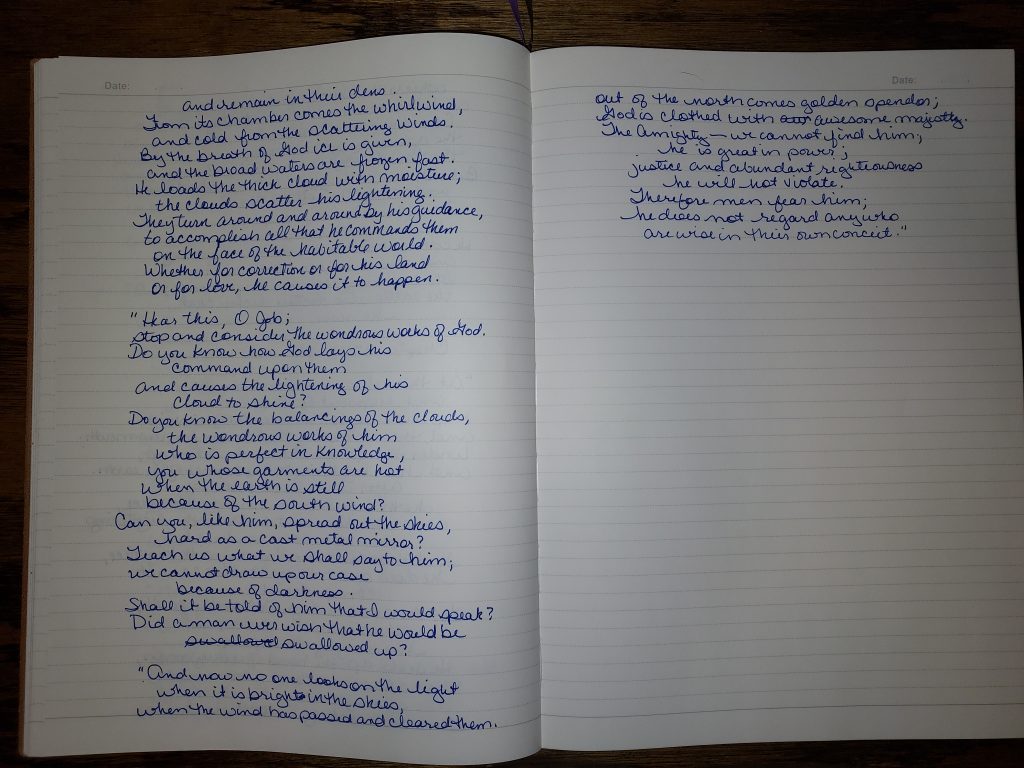 Date:
and remain in their dens.
From its chamber comes the whirlwind,
and cold from the scattering winds.
By the breath of God ice is given,
and the broad waters are frozen fast.
He loads the thick cloud with moisture;
the clouds scatter his lightening.
They turn around and around by his guidance,
to accomplish all that he commands them
on the face of the habitable world.
Whether for correction or for his land
or for love, he causes it to happen.
"Hear this, O Job;
stop and consider the wondrous works of God.
Do you know how God lays his
command upon them
and causes the lightening of his
cloud to shine?
Do you know the balancings of the clouds,
the wondrous works of him
who is perfect in knowledge,
you whose garments are hot
when the earth is still
because of the south wind?
Can you, like him, spread out the skies,
hard as a cast metal mirror?
Teach us what we shall say to him;
we cannot draw up our case
because of darkness.
Shall it be told of him that I would speak?
Did a man ever wish that he would be
swallowed swallowed up?
"And now no one looks on the light
when it is bright in the skies,
when the wind has passed and cleared them.
Date:
out of the north comes golden spendor;
God is clothed with awesome majestty.
The Amighty — we cannot find him;
he is great in power;
justice and abundant righteousness
he will not violate.
Therefore men fear him;
he does not regard any who
are wise in their own conceit."